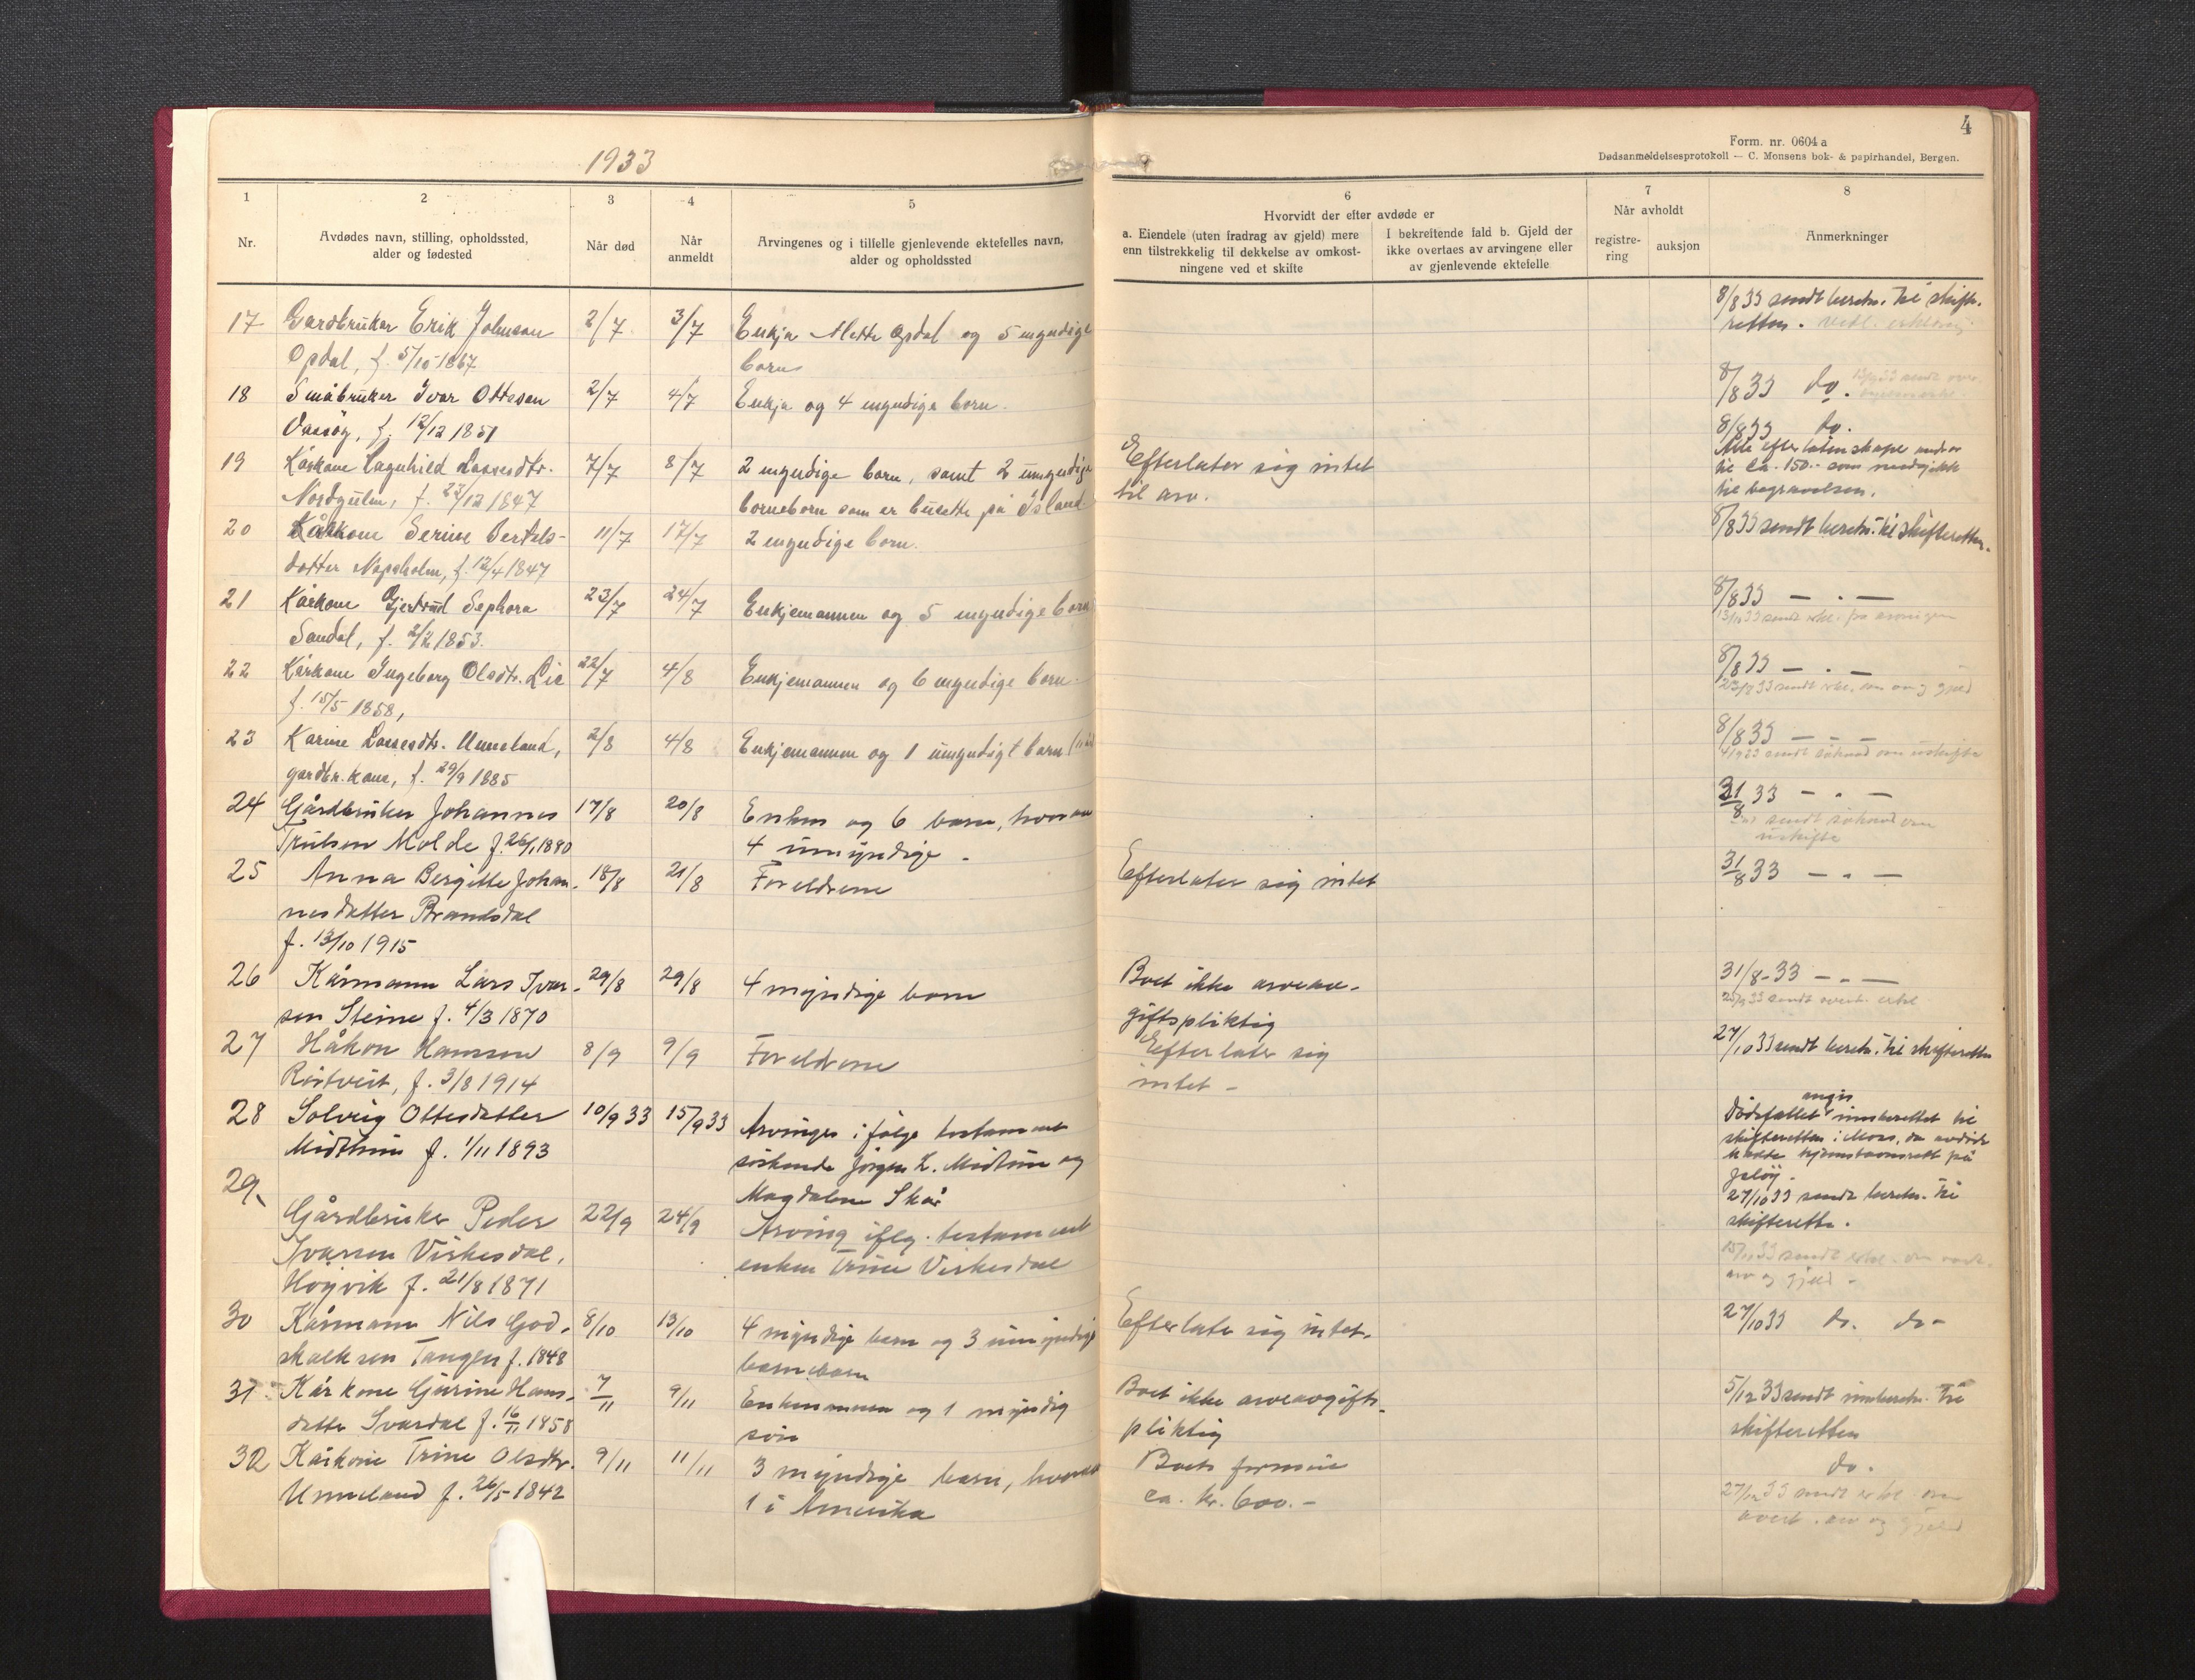 1933
4
Form. nr. 0604 a
Dødsanmeldelsesprotokoll — C. Monsens bok- & papirhandel, Bergen.
1
2
3
4
5
6
7
8
Nr.
Avdødes navn, stilling, opholdssted,
alder og fødested
Når død
Når
anmeldt
Arvingenes og i tilfelle gjenlevende ektefelles navn,
alder og opholdssted
Hvorvidt der efter avdøde er
a. Eiendele (uten fradrag av gjeld) mere
enn tilstrekkelig til dekkelse av omkost-
ningene ved et skifte
I bekreftende fald b. Gjeld der
ikke overtaes av arvingene eller
av gjenlevende ektefelle
Når avholdt
registre-
ring
auksjon
Anmerkninger
17 Gardbruker Erik Johnson 2/7 3/7 Enkja Mette Opdal og 5 myndige 8/8 33 sendt beretn. til skifte-
Opdal, f. 5/10 1867 born retten.
18 Småbruker Ivar Ottesen 2/7 4/7 Enkja og 4 myndige born. 8/8 33 do.
f. 12/12 1851
19 Kårkone Ragnhild Lassesdtr. 7/7 8/7 2 myndige born, samt 2 umyndige Efterlater sig intet 8/8 33 do.
Nordgulen, f. 23/12 1847 borneborn som er busette på Island til arv. til ca. 150.- som medgikk
til begravelsen.
20 Kårkone Serine Bertels- 11/7 17/7 2 myndige born. 8/8 33 sendt beretn. til skifteretten.
dotter Napsholm, f. 12/4 1847
21 Kårkone Gjertrud Sephora 23/7 24/7 Enkjemannen og 5 myndige born 8/8 33 — . —
Sandal, f. 2/2 1853.
22 Kårkone Ingeborg Olsdtr. Lie 22/7 4/8 Enkjemannen og 6 myndige born. 8/8 33 — . —
f. 15/5 1858,
23 Karine Lassesdtr. Unneland, 2/8 4/8 Enkjemannen og 1 umyndigt barn 8/8 33 — - —
gardbr. kone, f. 29/9 1885 4/9 33 sendt søknad om uskifte
24 Gårdbruker Johannes 17/8 20/8 Enken og 6 barn, hvorav 31/8 33 — „ —
Trulsen Molde f. 26/1 1880 4 umyndige - sendt søknad om
uskifte
25 Anna Bergitte Johan- 18/8 21/8 Foreldrene Efterlater sig intet 31/8 33 — „ —
nesdatter Brandsdal
f. 13/10 1915
26 Kårmann Lars Ivar- 29/8 29/8 4 myndige barn Boet ikke arveav- 31/8-33 — „ —
sen Steine f. 4/3 1870 giftspliktig
27 Håkon Hansson 8/9 9/9 Foreldrene Efterlater sig 27/10 33 sendt beretn. til skifteretten
f. 3/8 1914 intet -
28 Solveig Ottesdatter 10/9 33 15/9 33 Arvinger ifølge testament Dødsfallet innberettet til
Midthun f. 1/11 1893 søskende Jørgen L. Midthun og skifteretten i Moss, da avdøde
hadde hjemstavnsrett på
Magdalene Skår Jeløy.
29. 27/10 33 sendt beretn. til
Gårdbruker Peder 22/9 24/9 Arving iflg. testament skifterett.
Ivarsen Virkesdal, enken Trine Virkesdal
f. 21/8 1871 arv og gjeld -
30 Kårmann Nils God- 8/10 13/10 4 myndige barn og 3 umyndige Efterlater sig intet. 27/10 33 do. do-
skalksen Tangen f. 1848 barnebarn
31 Kårkone Gjurine Hans- 7/11 9/11 Enkemannen og 1 myndig Boet ikke arveavgifts- 5/12 33 sendt innberetn. til
datter Svardal f. 16/11 1858 søn pliktig skifteretten
32 Kårkone Trine Olsdtr. 9/11 11/11 3 myndige barn, hvorav Boets formue do.
Unneland f. 26/5 1842 1 i Amerika ca. kr. 600.-